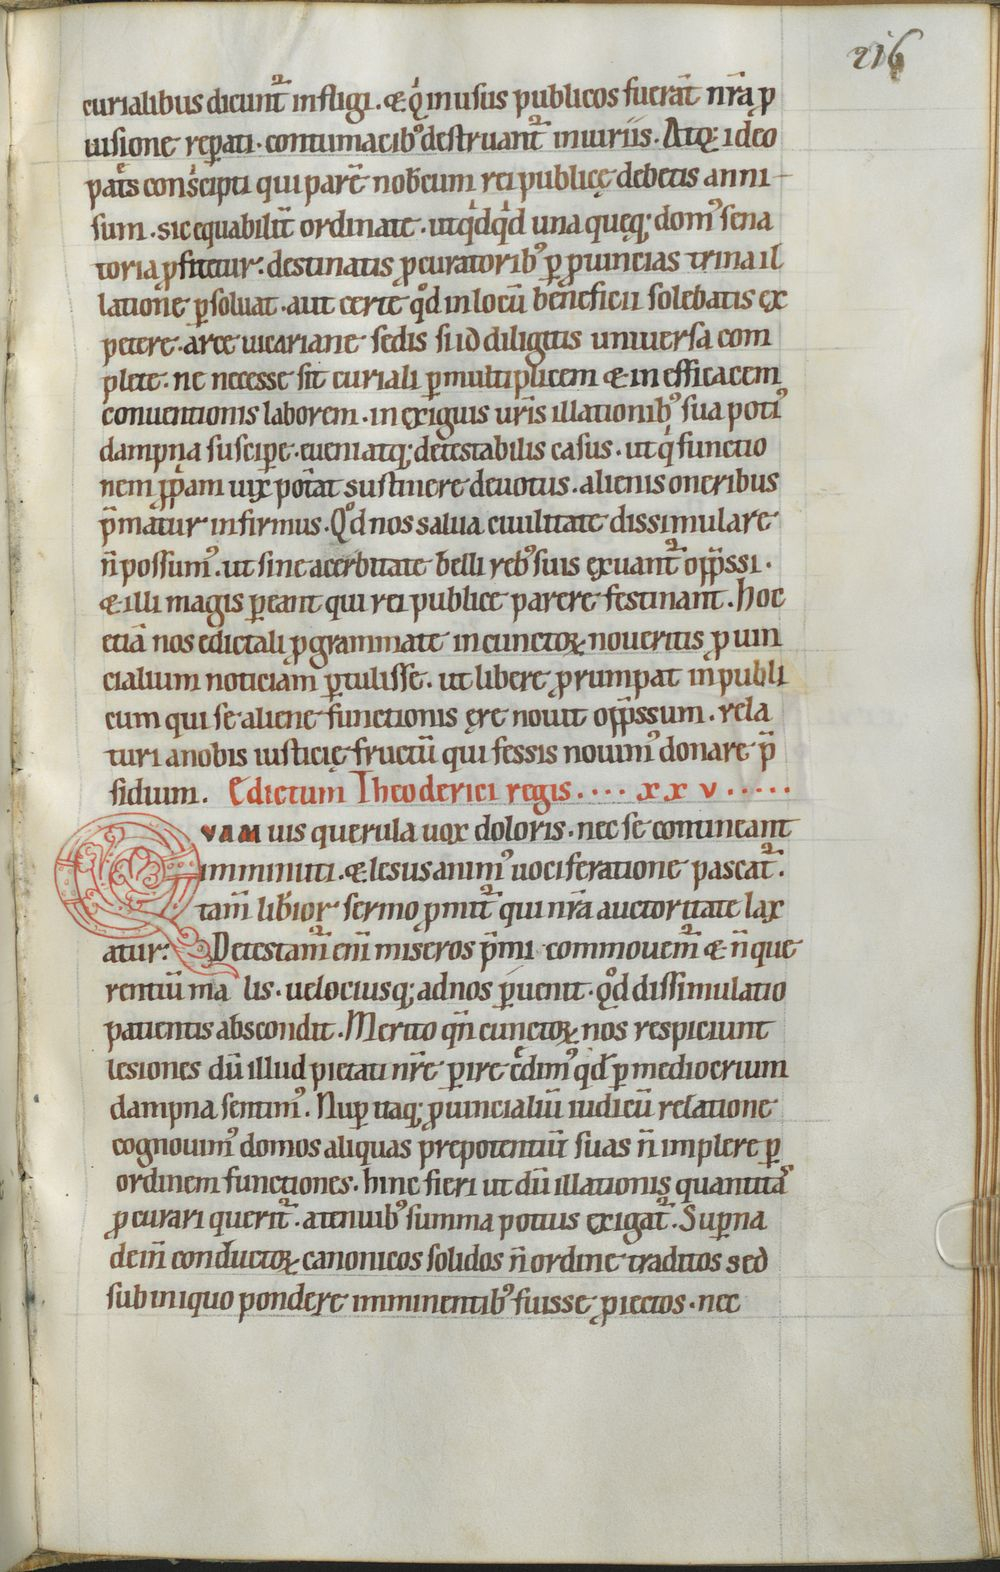 216
curialibus dicunt᷑ infligi. & qͥ in usus publicos fuerāt nr̄a ꝓ
uisione reꝑati. contumacibꝰ destruant᷑ iniuriis. Atq; ideo
patͤs consͥcipti qui parē nobcum rei publicę debetis anni
sum. sic equabilit̄ ordinate. utqͥdqͥd una queq; domꝰ sena
toria ꝓfitetur. destinatis ꝓcuratoribꝰ ꝑ ꝓuincias trina il
latione ꝑsoluat. aut certe qͦd in locū beneficii solebatis ex
petere. arce uicariane sedis si id diligitis uniuersa com
plete. ne necesse sit curiali ꝑ multiplicem & in efficacem
conuentionis laborem. in exiguis ur̄is illationibꝰ sua potiꝰ
dampna susciꝑe. eueniatq; detestabilis casus. ut qͥ functio
nem ꝓpͥam uix pot̄at sustinere deuotus. alienis oneribus
p̄matur infirmus. Qͦd nos salua ciuilitate dissimulare
n̄ possumꝰ. ut sine acerbitate belli rebꝰ suis exuant᷑ opp̄ssi.
& illi magis ꝑeant qui rei publice parere festinant. hoc
etiā nos edictali ꝓgrammate in cunctoꝝ noueritis ꝓuin
cialium noticiam ꝑtulisse. ut libere ꝓrumpat in publi
cum qui se aliene functionis ęre nouit opp̄ssum. rela
turi anobis iusticię fructū qui fessis nouimꝰ donare p̄
sidium. Edictum Theoderici regis.... xxv.....
QVAM uis querula uox doloris. nec se contineant
imminuti. & lesus animꝰ uociferatione pascat᷑.
tam̄ liberior sermo ꝓmit᷑ qui nr̄a auctoritate lax
atur. Detestam᷑ eni᷑ miseros p̄mi commouem᷑ & n̄ que
rentiū malis. uelociusq; adnos ꝑuenit. qͦd dissimulatio
patientis abscondit. Merito qn̄ cunctoꝝ nos respiciunt
lesiones dū illud pietati nr̄e ꝑire cͤdimꝰ qd̄ ꝑ mediocrium
dampna sentimꝰ. Nuꝑ itaq; ꝓuincialiū iudicū relatione
cognouimꝰ domos aliquas prepotentiū suas n̄ implere ꝑ
ordinem functiones. hinc fieri ut dū illationis quantitaˢ
ꝓcurari querit᷑. atenuibꝰ summa potius exigat᷑. Suꝑna
dem̄ conductoꝝ canonicos solidos n̄ ordine traditos sed
sub iniquo pondere imminentibꝰ fuisse ꝓiectos. nec